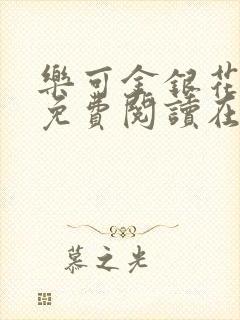 樂可金銀花
免費閱讀在
慕之光